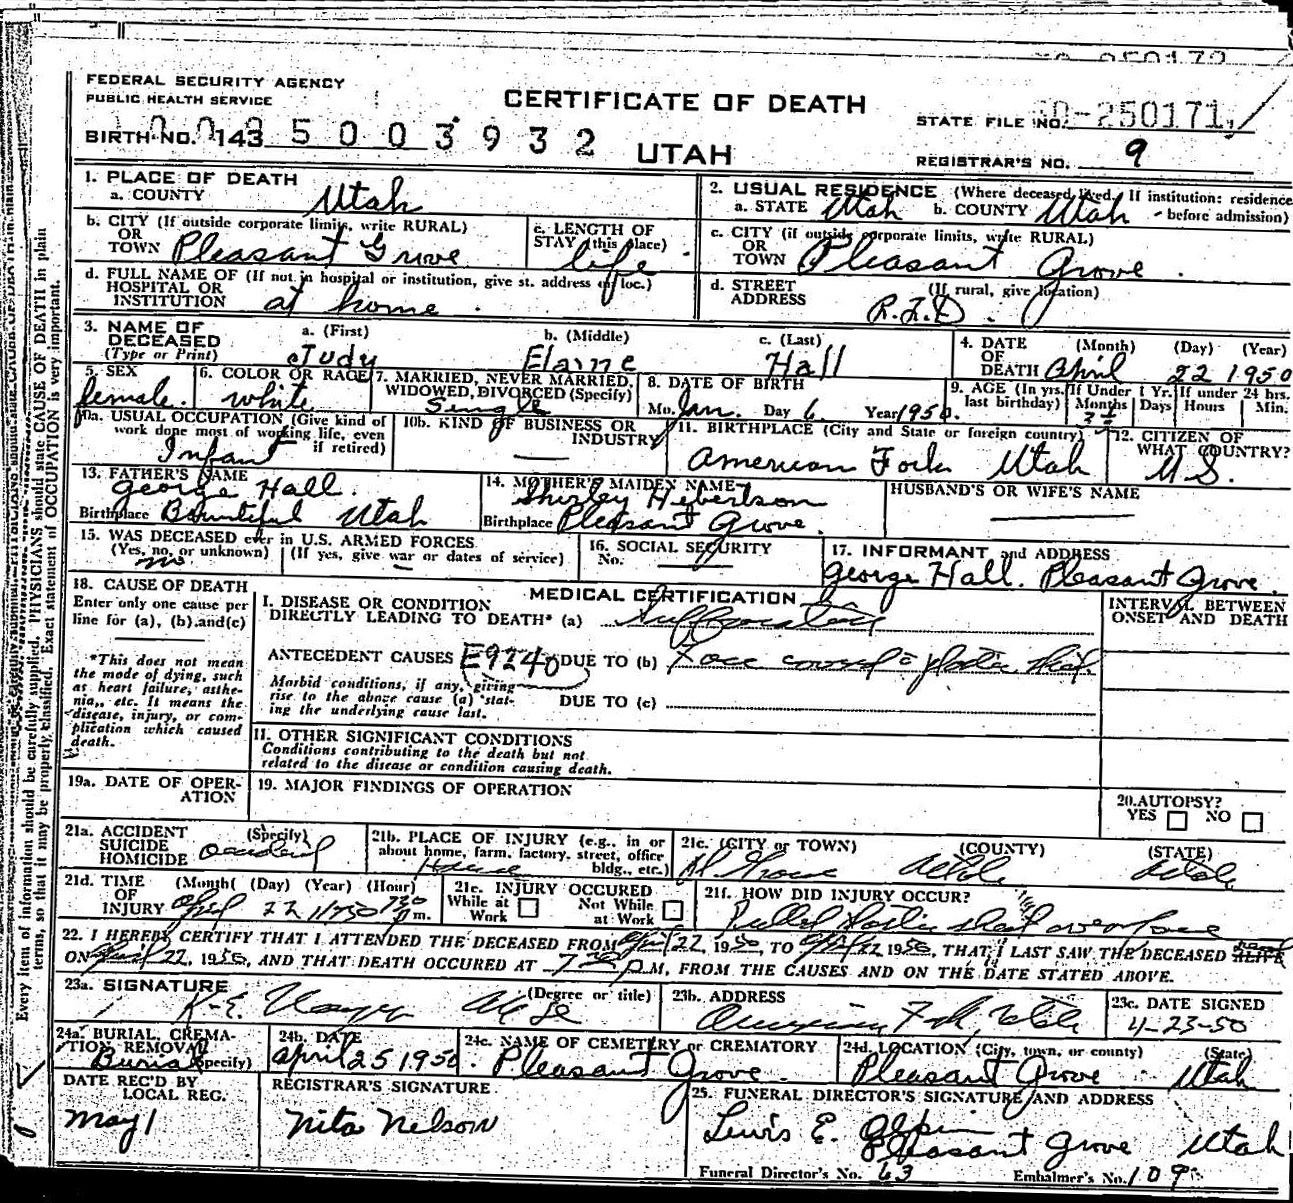 FEDERAL SECURITY AGENCY
PUBLIC HEALTH SERVICE
CERTIFICATE OF DEATH
STATE FILE NO. 50-250171
BIRTH NO. 143 5003932
UTAH
REGISTRAR'S NO. 9
1. PLACE OF DEATH
a. COUNTY Utah
2. USUAL RESIDENCE (Where deceased lived. If institution: residence before admission)
a. STATE Utah b. COUNTY Utah
b. CITY (If outside corporate limits, write RURAL)
OR
TOWN Pleasant Grove
c. LENGTH OF
STAY (this place) life
c. CITY (if outside corporate limits, write RURAL)
OR
TOWN Pleasant Grove.
d. FULL NAME OF (If not in hospital or institution, give st. address or loc.)
HOSPITAL OR
INSTITUTION at home.
d. STREET (If rural, give location)
ADDRESS R.F.D.
3. NAME OF DECEASED
(Type or Print)
a. (First) Judy
b. (Middle) Elaine
c. (Last) Hall
4. DATE (Month) (Day) (Year)
OF
DEATH April 22 1950
5. SEX female.
6. COLOR OR RACE white
7. MARRIED, NEVER MARRIED,
WIDOWED, DIVORCED (Specify) Single
8. DATE OF BIRTH
Mo. Jan. Day 6 Year 1950.
9. AGE (In yrs. last birthday)
If Under 1 Yr. Months Days
If under 24 hrs. Hours Min.
10a. USUAL OCCUPATION (Give kind of
work done most of working life, even
if retired) Infant
10b. KIND OF BUSINESS OR
INDUSTRY —
11. BIRTHPLACE (City and State or foreign country)
American Fork Utah
12. CITIZEN OF
WHAT COUNTRY? U.S.
13. FATHER'S NAME
George Hall.
Birthplace Bountiful Utah
14. MOTHER'S MAIDEN NAME
Shirley Hebertson
Birthplace Pleasant Grove.
HUSBAND'S OR WIFE'S NAME
15. WAS DECEASED ever in U.S. ARMED FORCES
(Yes, no, or unknown) no
(If yes, give war or dates of service) —
16. SOCIAL SECURITY
No. —
17. INFORMANT and ADDRESS
George Hall. Pleasant Grove.
18. CAUSE OF DEATH
Enter only one cause per
line for (a), (b), and (c)
*This does not mean
the mode of dying, such
as heart failure, asthe-
nia, etc. It means the
disease, injury, or com-
plication which caused
death.
MEDICAL CERTIFICATION
INTERVAL BETWEEN
ONSET AND DEATH
I. DISEASE OR CONDITION
DIRECTLY LEADING TO DEATH* (a) Suffocation
ANTECEDENT CAUSES E9240 DUE TO (b) Face covered plastic
Morbid conditions, if any, giving
rise to the above cause (a) stat-
ing the underlying cause last.
DUE TO (c)
II. OTHER SIGNIFICANT CONDITIONS
Conditions contributing to the death but not
related to the disease or condition causing death.
19a. DATE OF OPER-
ATION
19. MAJOR FINDINGS OF OPERATION
20. AUTOPSY?
YES NO
21a. ACCIDENT (Specify)
SUICIDE
HOMICIDE accident
21b. PLACE OF INJURY (e.g., in or
about home, farm, factory, street, office
bldg., etc.)
21c. (CITY or TOWN) (COUNTY) (STATE)
Pl Grove Utah Utah
21d. TIME (Month) (Day) (Year) (Hour)
OF
INJURY April 22 1950 m.
21e. INJURY OCCURED
While at Work
Not While at Work
21f. HOW DID INJURY OCCUR?
Pulled plastic over face
22. I HEREBY CERTIFY THAT I ATTENDED THE DECEASED FROM April 22, 1950, TO April 22 1950, THAT I LAST SAW THE DECEASED ALIVE
ON April 22, 1950, AND THAT DEATH OCCURED AT P M, FROM THE CAUSES AND ON THE DATE STATED ABOVE.
23a. SIGNATURE (Degree or title)
K. E.
23b. ADDRESS
American Fork, Utah
23c. DATE SIGNED
4-23-50
24a. BURIAL, CREMA-
TION, REMOVAL
Burial (Specify)
24b. DATE
April 25 1950.
24c. NAME OF CEMETERY or CREMATORY
Pleasant Grove.
24d. LOCATION (City, town, or county) (State)
Pleasant Grove Utah
DATE REC'D BY
LOCAL REG.
May 1
REGISTRAR'S SIGNATURE
Nita Nelson
25. FUNERAL DIRECTOR'S SIGNATURE AND ADDRESS
Lewis E. Olpin
Pleasant Grove Utah
Funeral Director's No. 63 Embalmer's No. 109
Every item of information should be carefully supplied. PHYSICIANS should state CAUSE OF DEATH in plain
terms, so that it may be properly classified. Exact statement of OCCUPATION is very important.